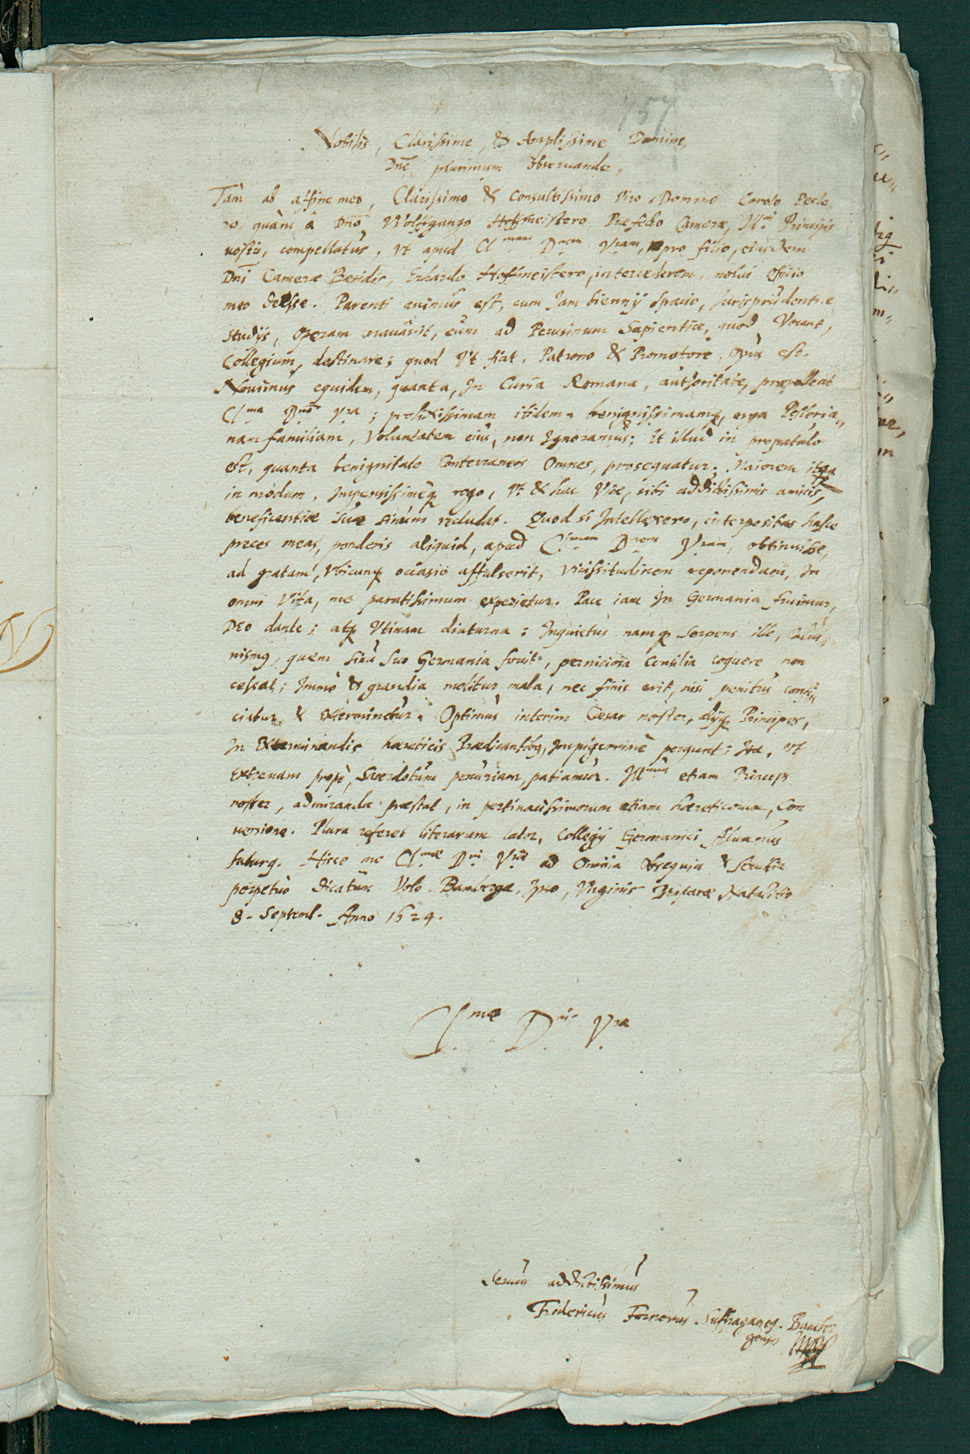 757
Nobilis, Clarissime, & Amplissime Domine,
Dne plurimum observande,
Tam ab affine meo, Clarissimo & Consultissimo Viro, Domino Carolo Pesle
ro, quàm à Dno Wolffgango Hoffmeistero, Præfecto Cameræ, Illmi Principis
nostri, compellatus, vt apud Clmam Dnem Vram, pro filio, eiusdem
Dni Cameræ Præsidis, Erhardo Hoffmeistero, intercederem, nolui officio
meo deesse. Parenti animus est, cum Iam biennij spacio, Iurisprudentiæ
studijs, operam nauauit, eum ad Perusinum Sapientiæ, quod Vocant,
Collegium, destinare; quod Vt fiat, Patrono & Promotore, opus est.
Nouimus equidem, quanta, In Curia Romana, authoritate, præpolleat
Clma Dno Vra; prolixissimam itidem, benignissimamq, erga Pesleria„
nam familiam, Voluntatem eius, non Ignoramus; Et illud in propatulo
est, quanta benignitate Conterraneos Omnes, prosequatur. Maiorem itaq
in modum, Impensissimeq rogo, Vt & hac Vice, sibi addictissimis amicis,
beneficentiæ suæ sinum recludat. Quod si Intellexero, interpositas hasce
preces meas, ponderis aliquid, apud Clmam Dnem Vram, obtinuisse,
ad gratam, Vbicunq occasio affulserit, Vicissitudinem reponendam, In
omni Vita, me paratissimum experietur. Pace iam In Germania fruimur,
Deo dante; atq Vtinam diuturna: Inquietus namq Serpens ille, Calui„
nismus, quem sinu Suo Germania fouit, perniciosa Consilia coquere non
cessat; Immò & grandia molitur mala, nec finis erit, nisi penitus confi„
ciatur & exterminetur. Optimus interim Cæsar noster, alijq Principes,
In Exterminandis hæreticis Prædicantibus, Impigerrimè pergunt: Ita, vt
Extremam propè, Sacerdotum penuriam, patiamur. Illmus etiam Princeps
noster, admiranda præstat, in pertinacissimorum etiam hæreticorum, Con
uersione. Plura referet literarum lator, Collegij Germanici Alumnus
Hisce me Clmæ Dni Vræ ad Omnia Obsequia & Seruitia
perpetuò dicatum Volo. Bambergæ, Ipso, Virginis Deiparæ Natalitio
8. Septemb. Anno 1624.
Clmæ Dnis Vræ
Seruus addictissimus
Fridericus Fornerus Suffraganeus Bamber
gensis